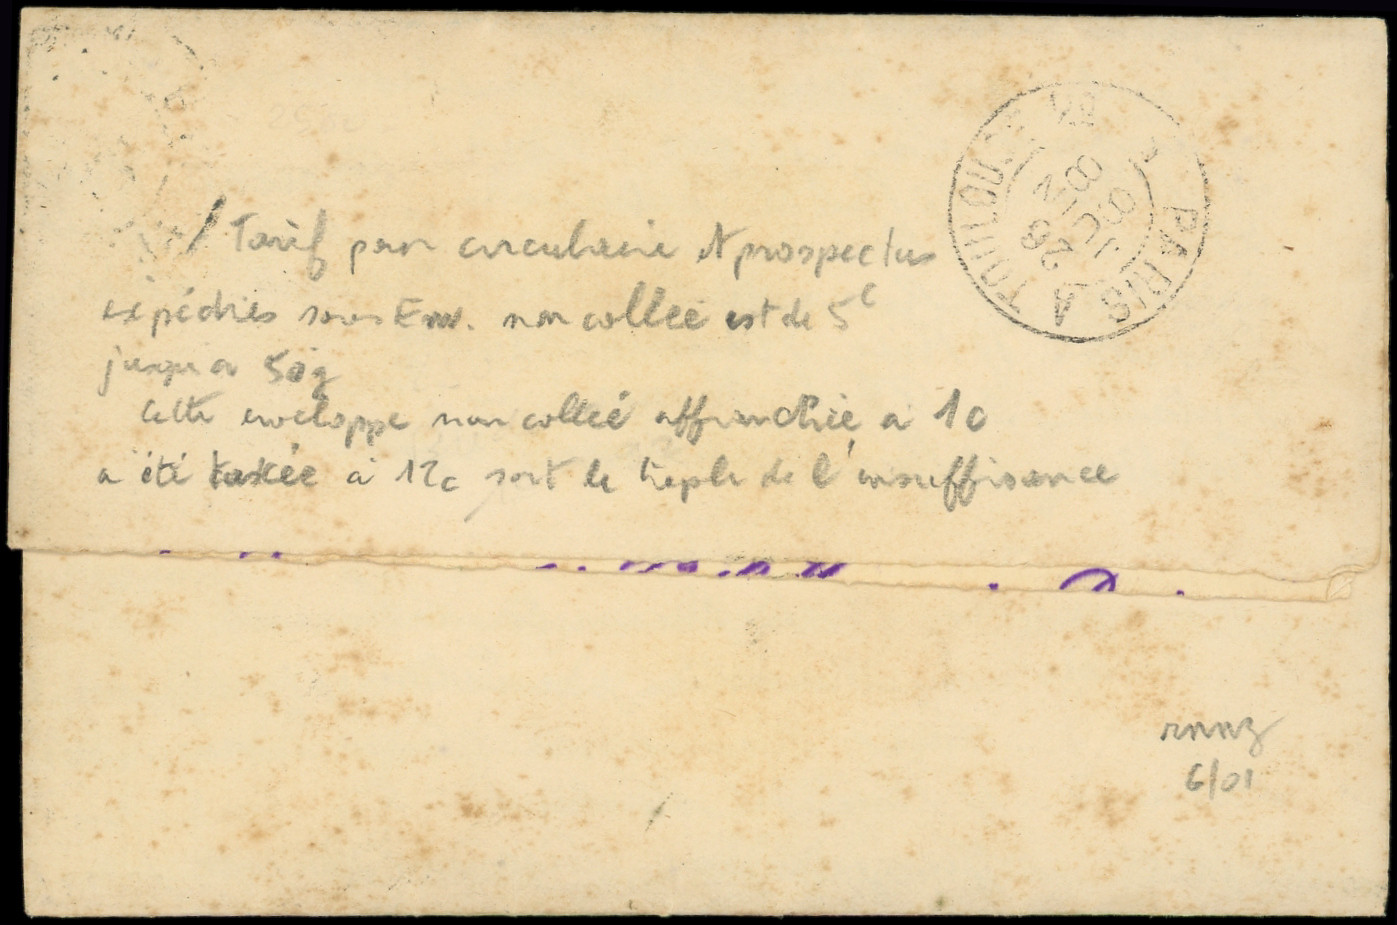 Tarif pour circulaire et prospectus
expédiés sous Env. non collée est de 5c
jusqu'a 50g
Cette enveloppe non collée affranchie a 1c
a été taxée à 12c soit le triple de l'insuffisance
PARIS A TOULOUSE
28
JUIN
98
6/01